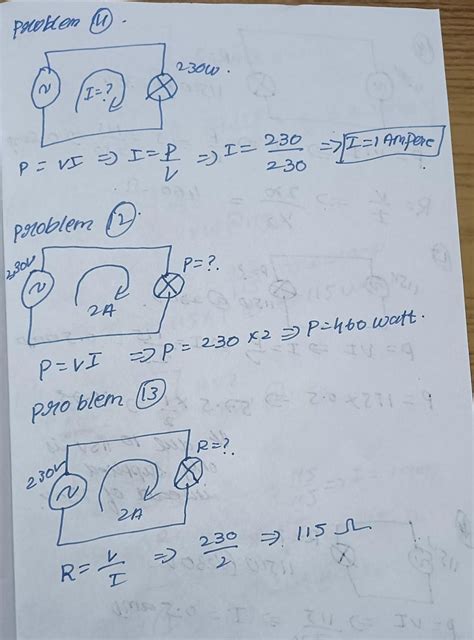 Problem 11.
230W.
I=?
P = VI ⇒ I = P/V ⇒ I = 230/230 ⇒ I = 1 Ampere
Problem 12.
230V
P=?.
2A
P = VI ⇒ P = 230 × 2 ⇒ P = 460 watt.
Problem 13
230V
R=?.
2A
R = V/I ⇒ 230/2 ⇒ 115 Ω